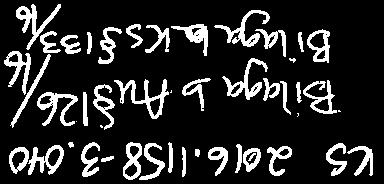 KS 2016.1158-3.040
Bilaga b Au§126/16
Bilaga b KS§133/16